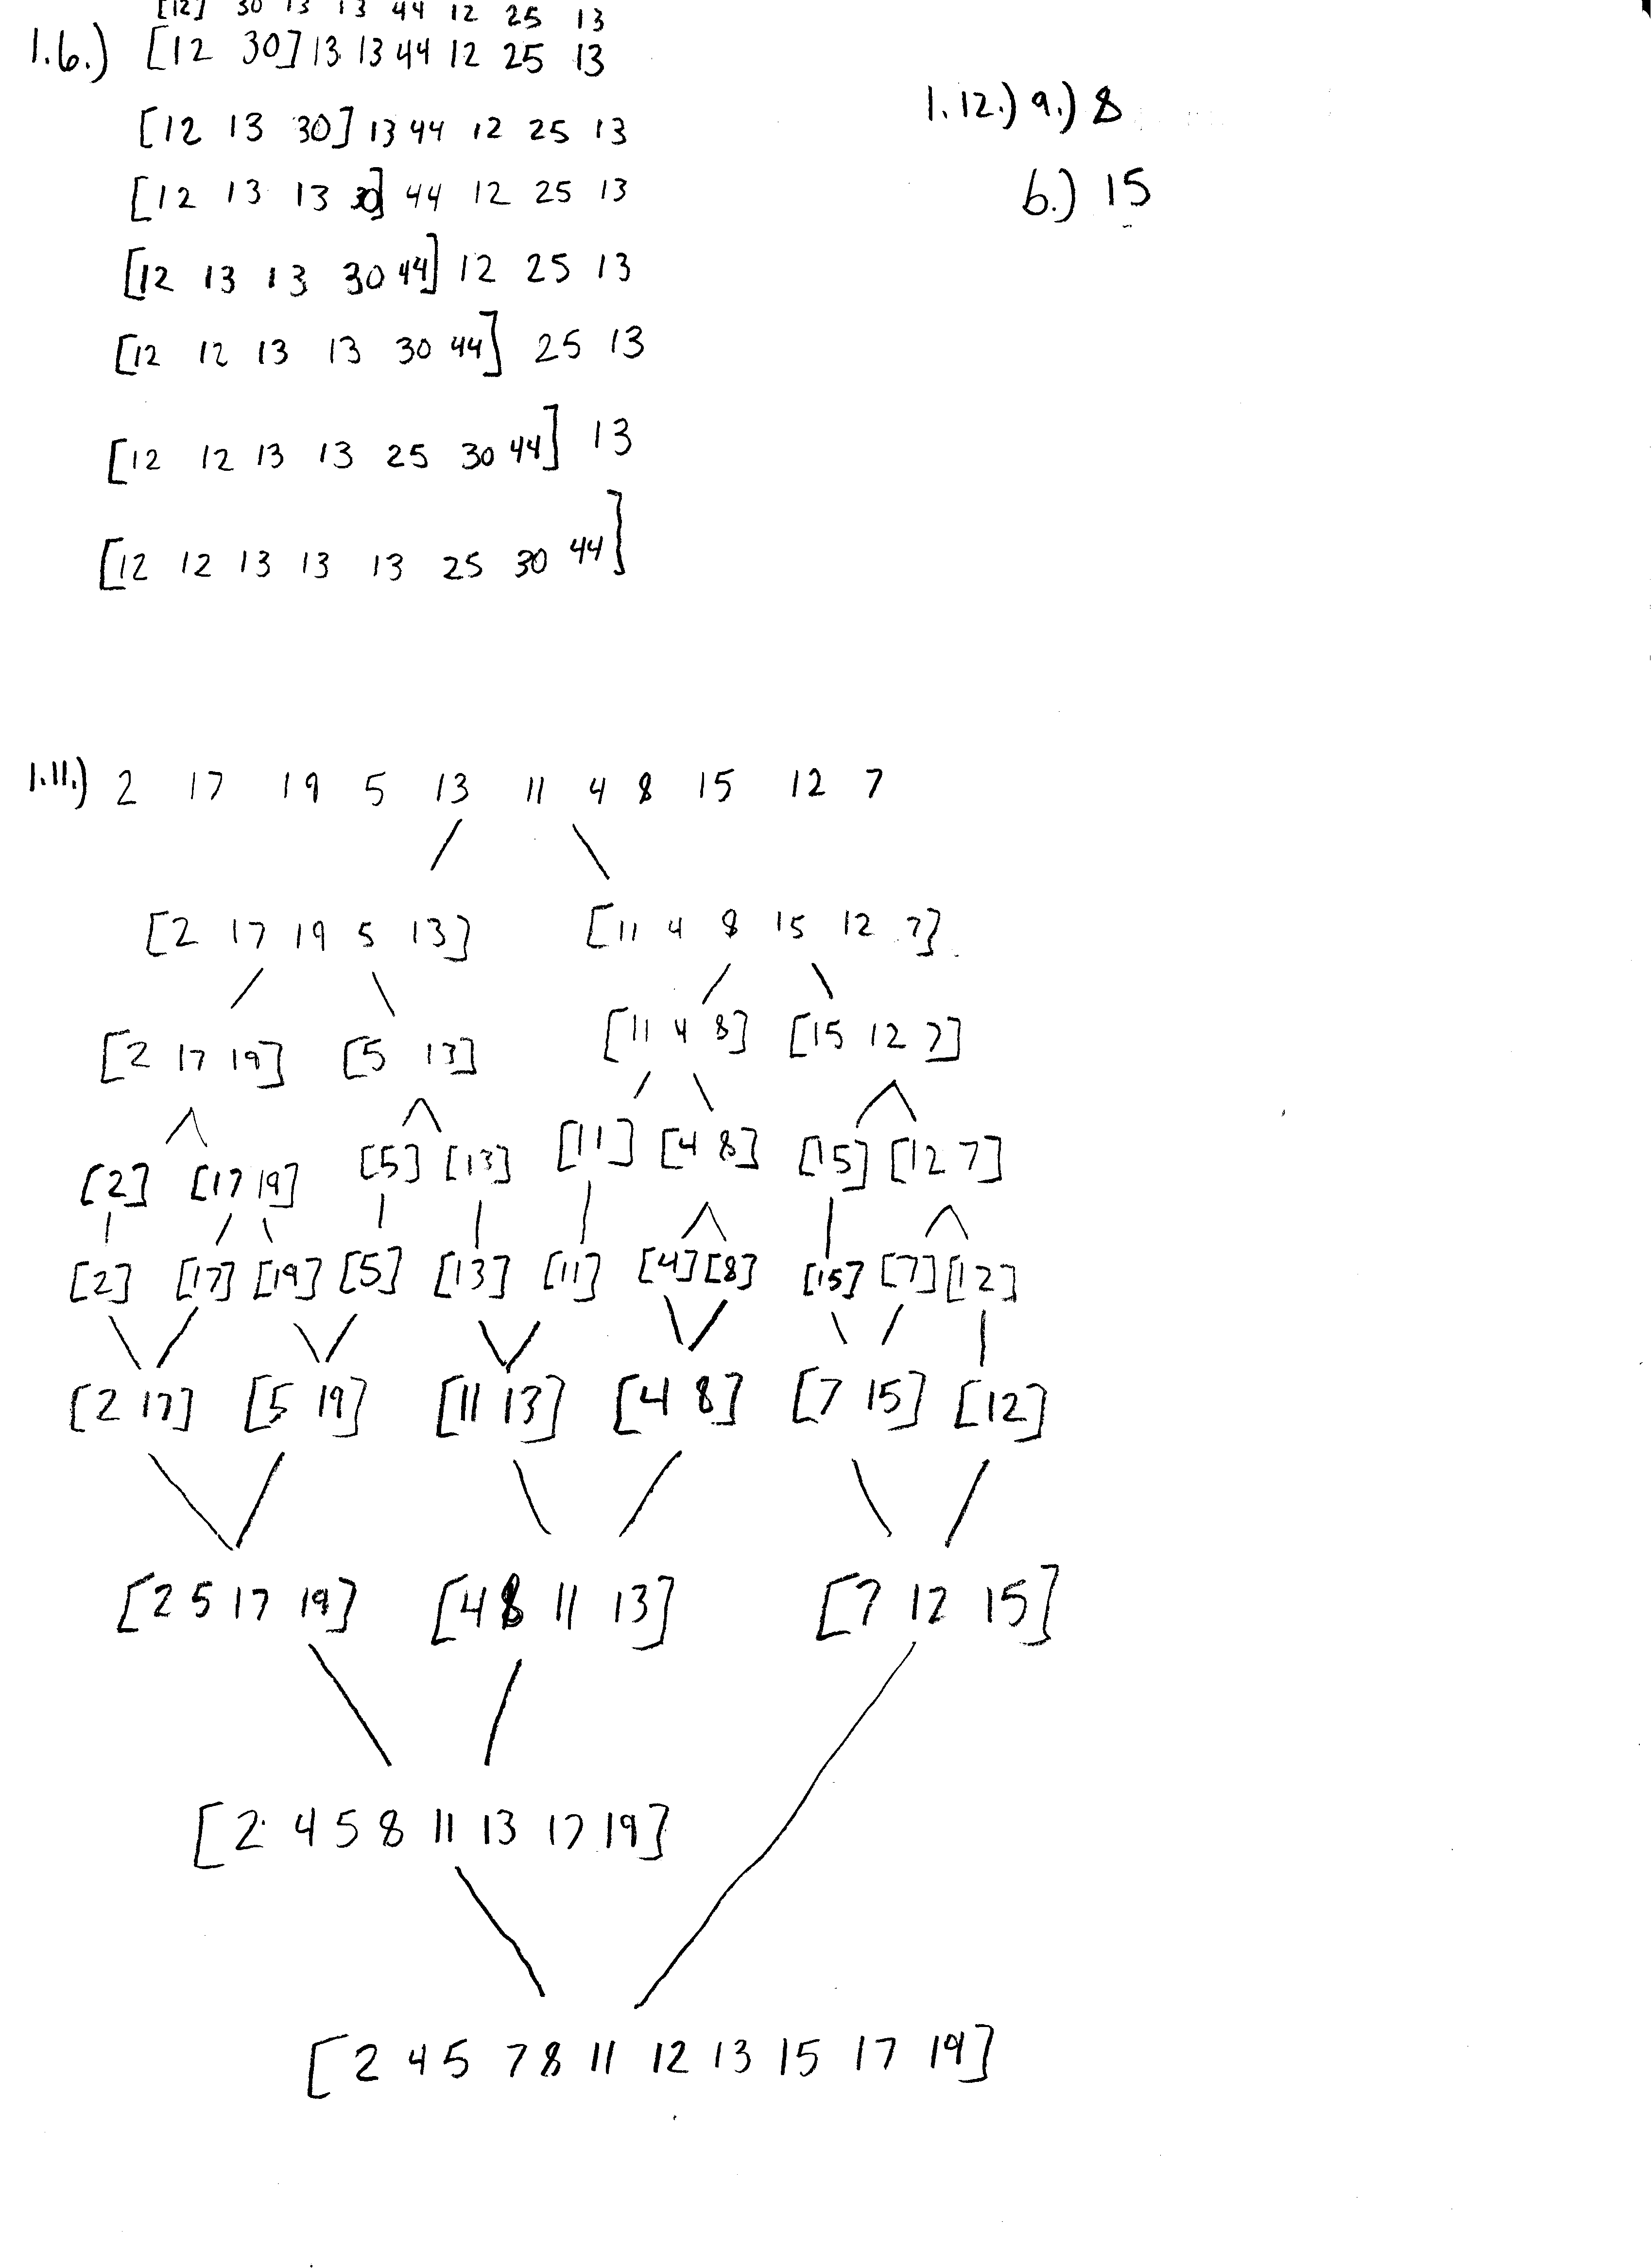 [12] 30 13 13 44 12 25 13
1.6.) [12 30] 13 13 44 12 25 13
[12 13 30] 13 44 12 25 13
[12 13 13 30] 44 12 25 13
[12 13 13 30 44] 12 25 13
[12 12 13 13 30 44] 25 13
[12 12 13 13 25 30 44] 13
[12 12 13 13 13 25 30 44]
1.12.) a.) 8
b.) 15
1.11.) 2 17 19 5 13 11 4 8 15 12 7
[2 17 19 5 13] [11 4 8 15 12 7]
[2 17 19] [5 13] [11 4 8] [15 12 7]
[2] [17 19] [5] [13] [11] [4 8] [15] [12 7]
[2] [17] [19] [5] [13] [11] [4] [8] [15] [7] [12]
[2 17] [5 19] [11 13] [4 8] [7 15] [12]
[2 5 17 19] [4 8 11 13] [7 12 15]
[2 4 5 8 11 13 17 19]
[2 4 5 7 8 11 12 13 15 17 19]